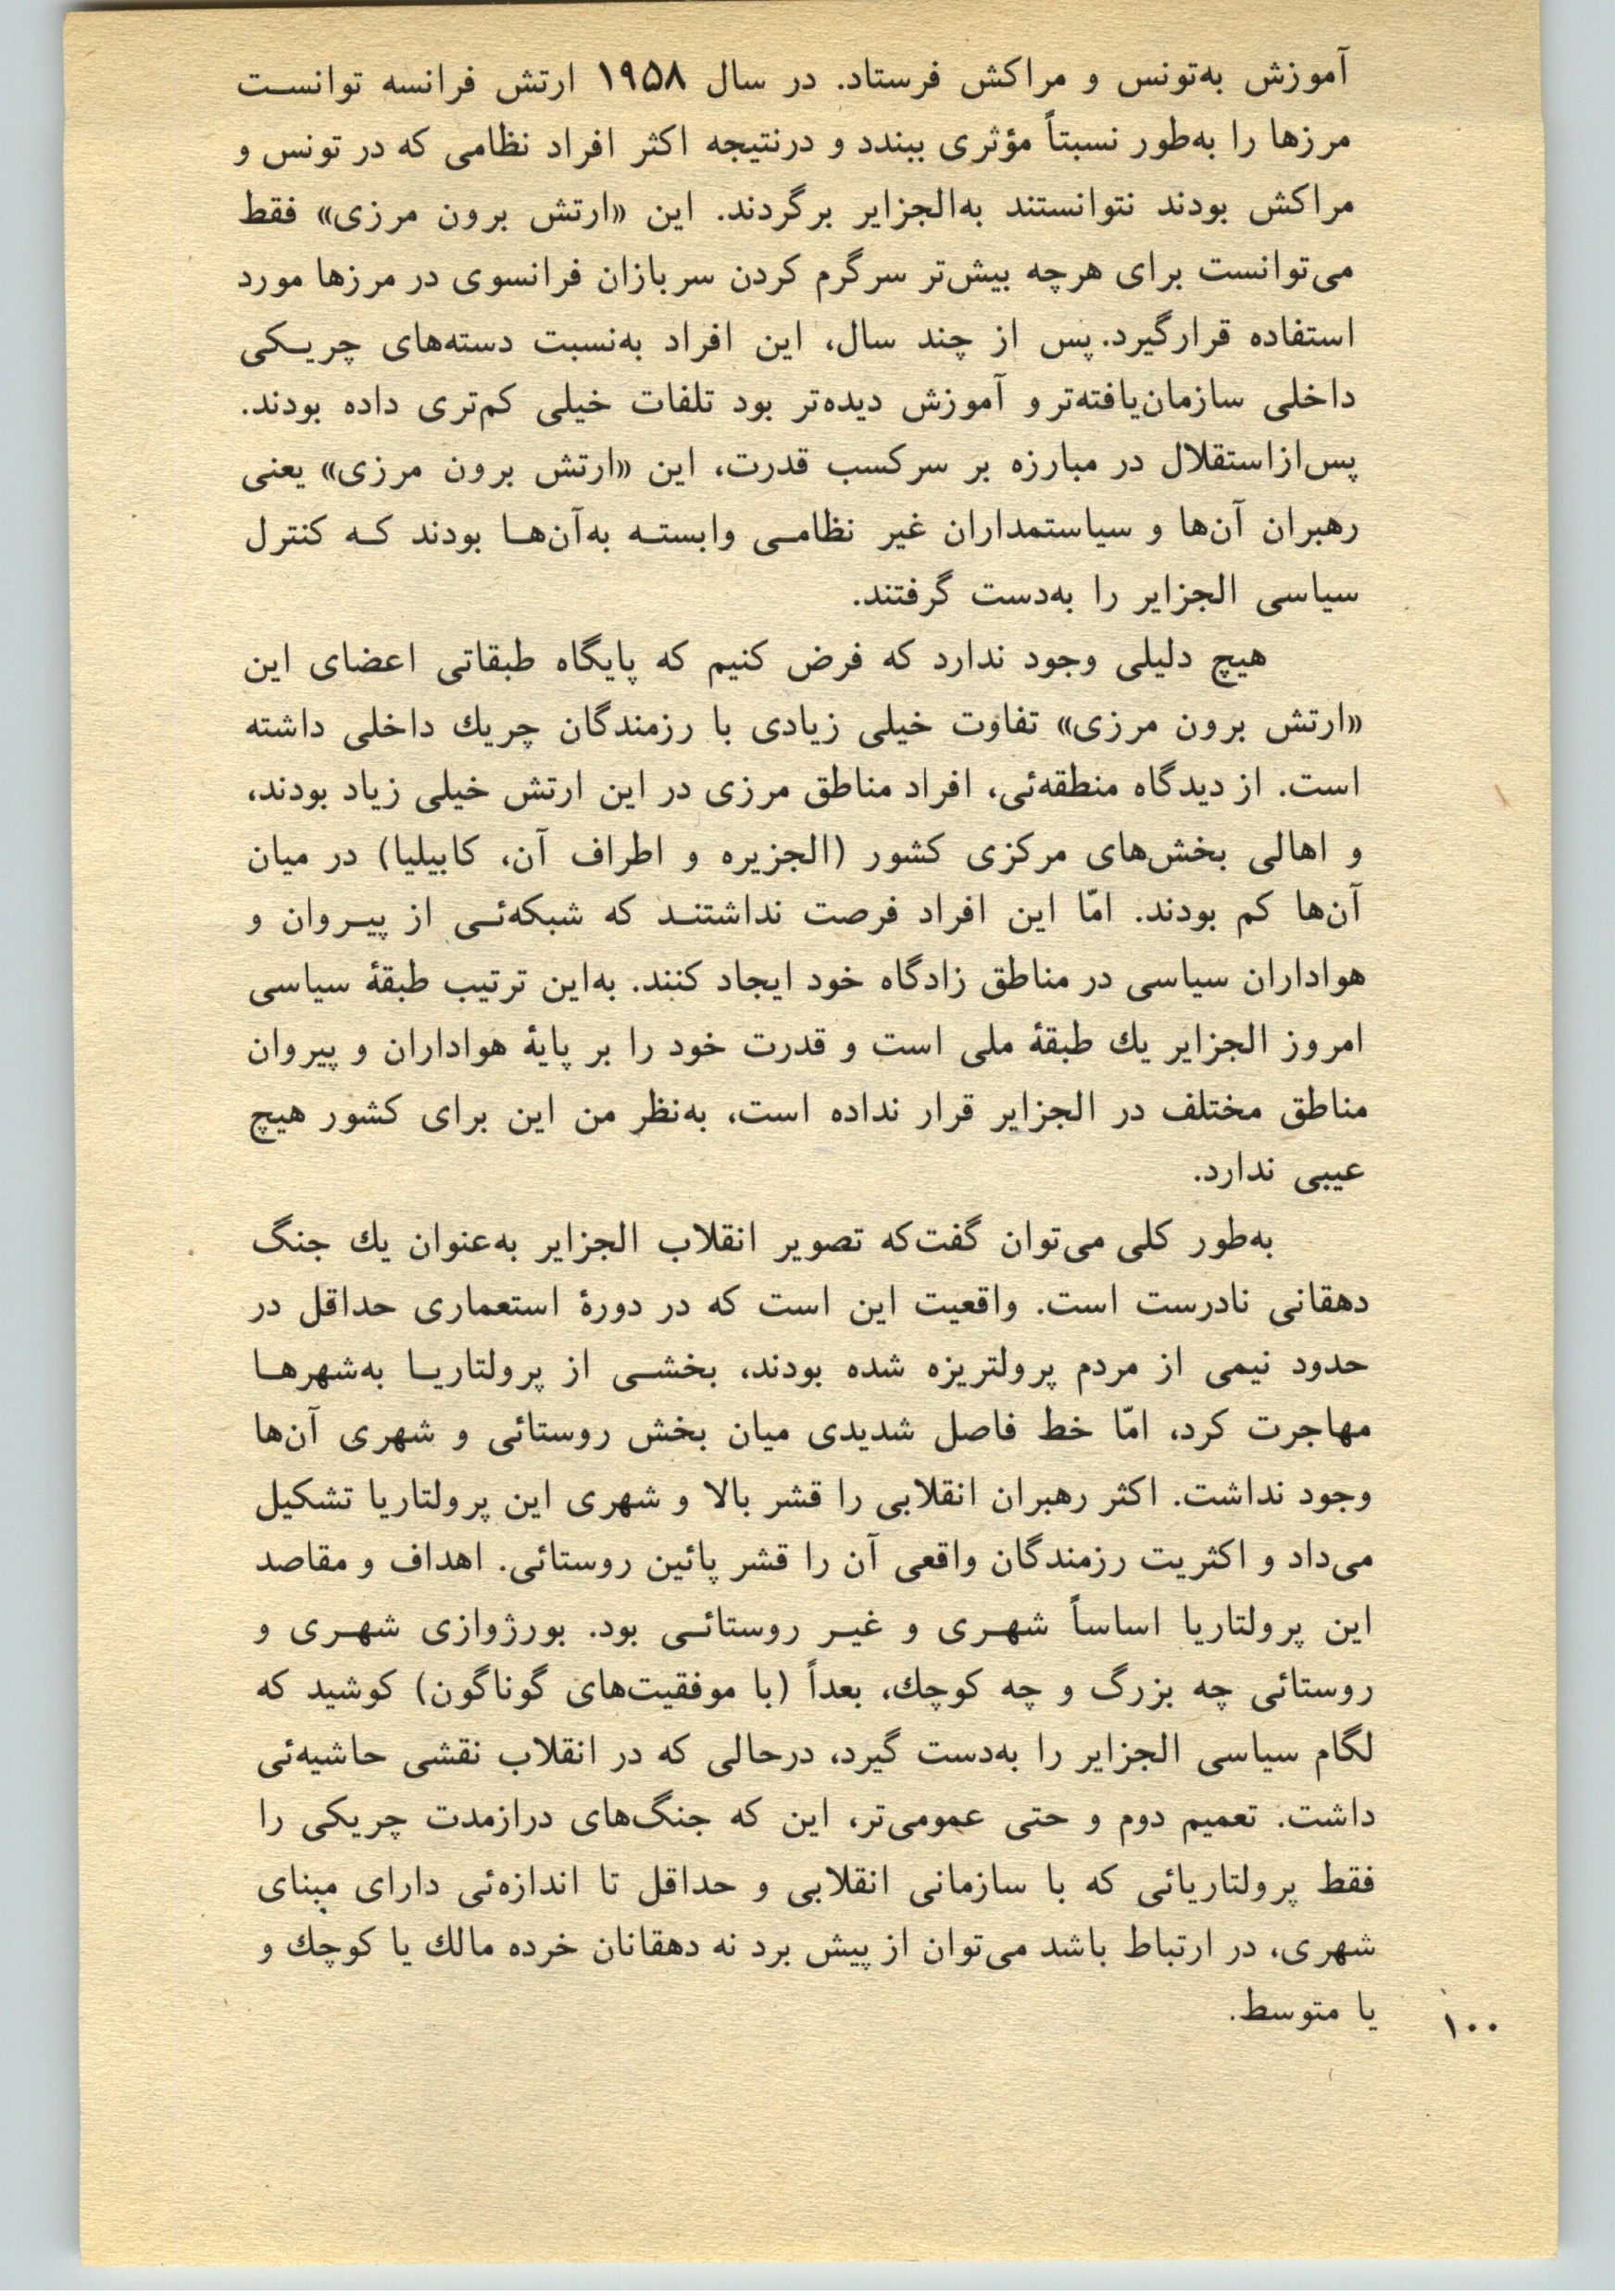 آموزش به‌تونس و مراکش فرستاد. در سال ۱۹۵۸ ارتش فرانسه توانست
مرزها را به‌طور نسبتاً مؤثری ببندد و درنتیجه اکثر افراد نظامی که در تونس و
مراکش بودند نتوانستند به‌الجزایر برگردند. این «ارتش برون مرزی» فقط
می‌توانست برای هرچه بیش‌تر سرگرم کردن سربازان فرانسوی در مرزها مورد
استفاده قرارگیرد. پس از چند سال، این افراد به‌نسبت دسته‌های چریکی
داخلی سازمان‌یافته‌تر و آموزش دیده‌تر بود تلفات خیلی کم‌تری داده بودند.
پس‌ازاستقلال در مبارزه بر سرکسب قدرت، این «ارتش برون مرزی» یعنی
رهبران آن‌ها و سیاستمداران غیر نظامی وابسته به‌آن‌ها بودند که کنترل
سیاسی الجزایر را به‌دست گرفتند.
هیچ دلیلی وجود ندارد که فرض کنیم که پایگاه طبقاتی اعضای این
«ارتش برون مرزی» تفاوت خیلی زیادی با رزمندگان چریك داخلی داشته
است. از دیدگاه منطقه‌ئی، افراد مناطق مرزی در این ارتش خیلی زیاد بودند،
و اهالی بخش‌های مرکزی کشور (الجزیره و اطراف آن، کابیلیا) در میان
آن‌ها کم بودند. امّا این افراد فرصت نداشتند که شبکه‌ئی از پیروان و
هواداران سیاسی در مناطق زادگاه خود ایجاد کنند. به‌این ترتیب طبقهٔ سیاسی
امروز الجزایر یك طبقهٔ ملی است و قدرت خود را بر پایهٔ هواداران و پیروان
مناطق مختلف در الجزایر قرار نداده است، به‌نظر من این برای کشور هیچ
عیبی ندارد.
به‌طور کلی می‌توان گفت‌که تصویر انقلاب الجزایر به‌عنوان یك جنگ
دهقانی نادرست است. واقعیت این است که در دورهٔ استعماری حداقل در
حدود نیمی از مردم پرولتریزه شده بودند، بخشی از پرولتاریا به‌شهرها
مهاجرت کرد، امّا خط فاصل شدیدی میان بخش روستائی و شهری آن‌ها
وجود نداشت. اکثر رهبران انقلابی را قشر بالا و شهری این پرولتاریا تشکیل
می‌داد و اکثریت رزمندگان واقعی آن را قشر پائین روستائی. اهداف و مقاصد
این پرولتاریا اساساً شهری و غیر روستائی بود. بورژوازی شهری و
روستائی چه بزرگ و چه کوچك، بعداً (با موفقیت‌های گوناگون) کوشید که
لگام سیاسی الجزایر را به‌دست گیرد، درحالی که در انقلاب نقشی حاشیه‌ئی
داشت. تعمیم دوم و حتی عمومی‌تر، این که جنگ‌های درازمدت چریکی را
فقط پرولتاریائی که با سازمانی انقلابی و حداقل تا اندازه‌ئی دارای مبنای
شهری، در ارتباط باشد می‌توان از پیش برد نه دهقانان خرده مالك یا کوچك و
یا متوسط.
۱۰۰